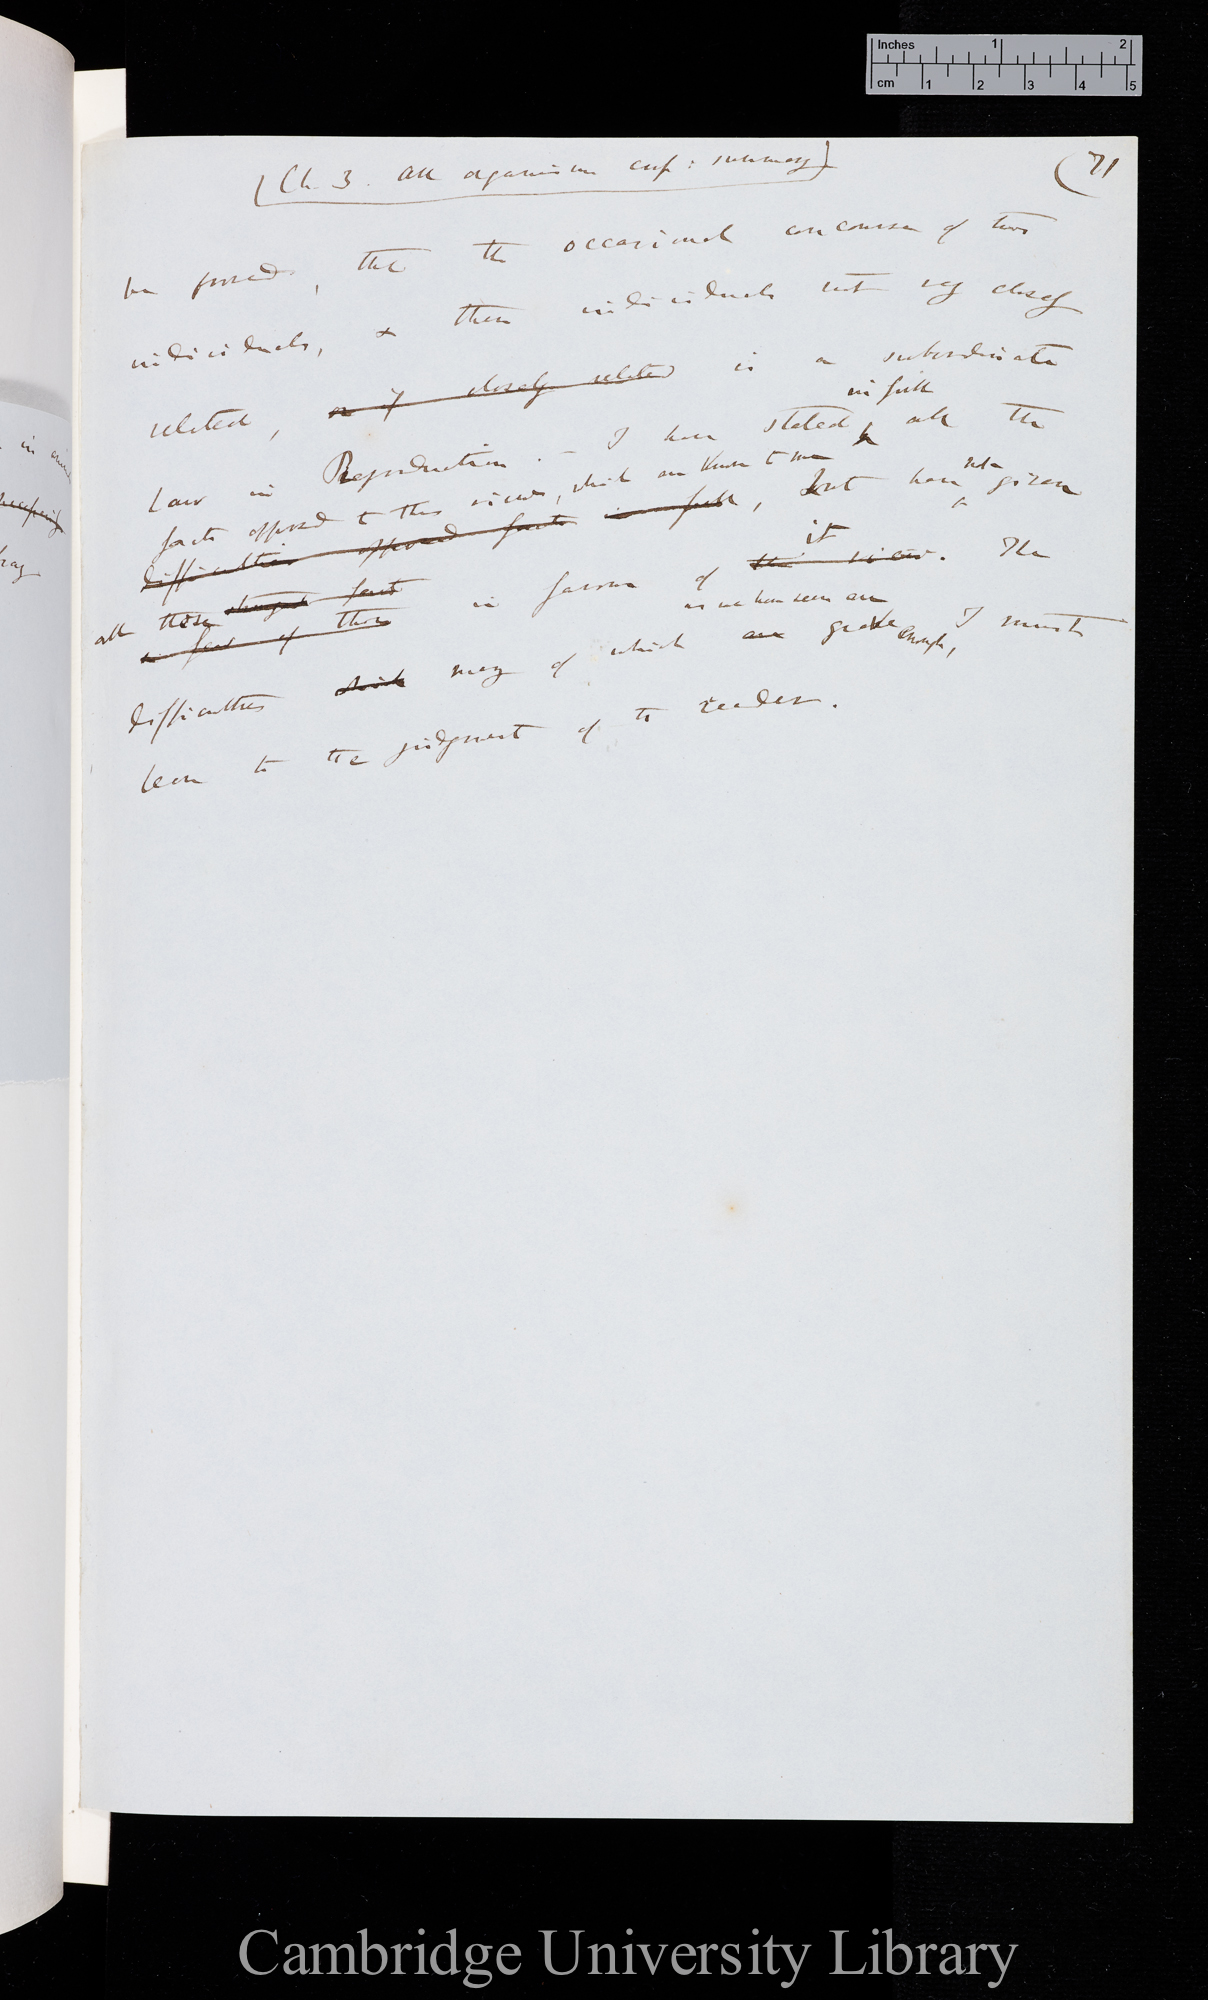 Inches 1 2
cm 1 2 3 4 5
(Ch. 3. All organisms : summary)
(71
be found, that the occasional concourse of two
individuals, & these individuals not very closely
related, or if closely related is a subordinate
in full
law in Reproduction.— I have stated all the
facts opposed to this view, which are known to me
not
difficulties opposed facts in full, but have given
it
all these strongest facts
a few of those in favour of this view. The
as we have seen are
difficulties which many of which are grave enough, I must
leave to the judgment of to reader.
Cambridge University Library